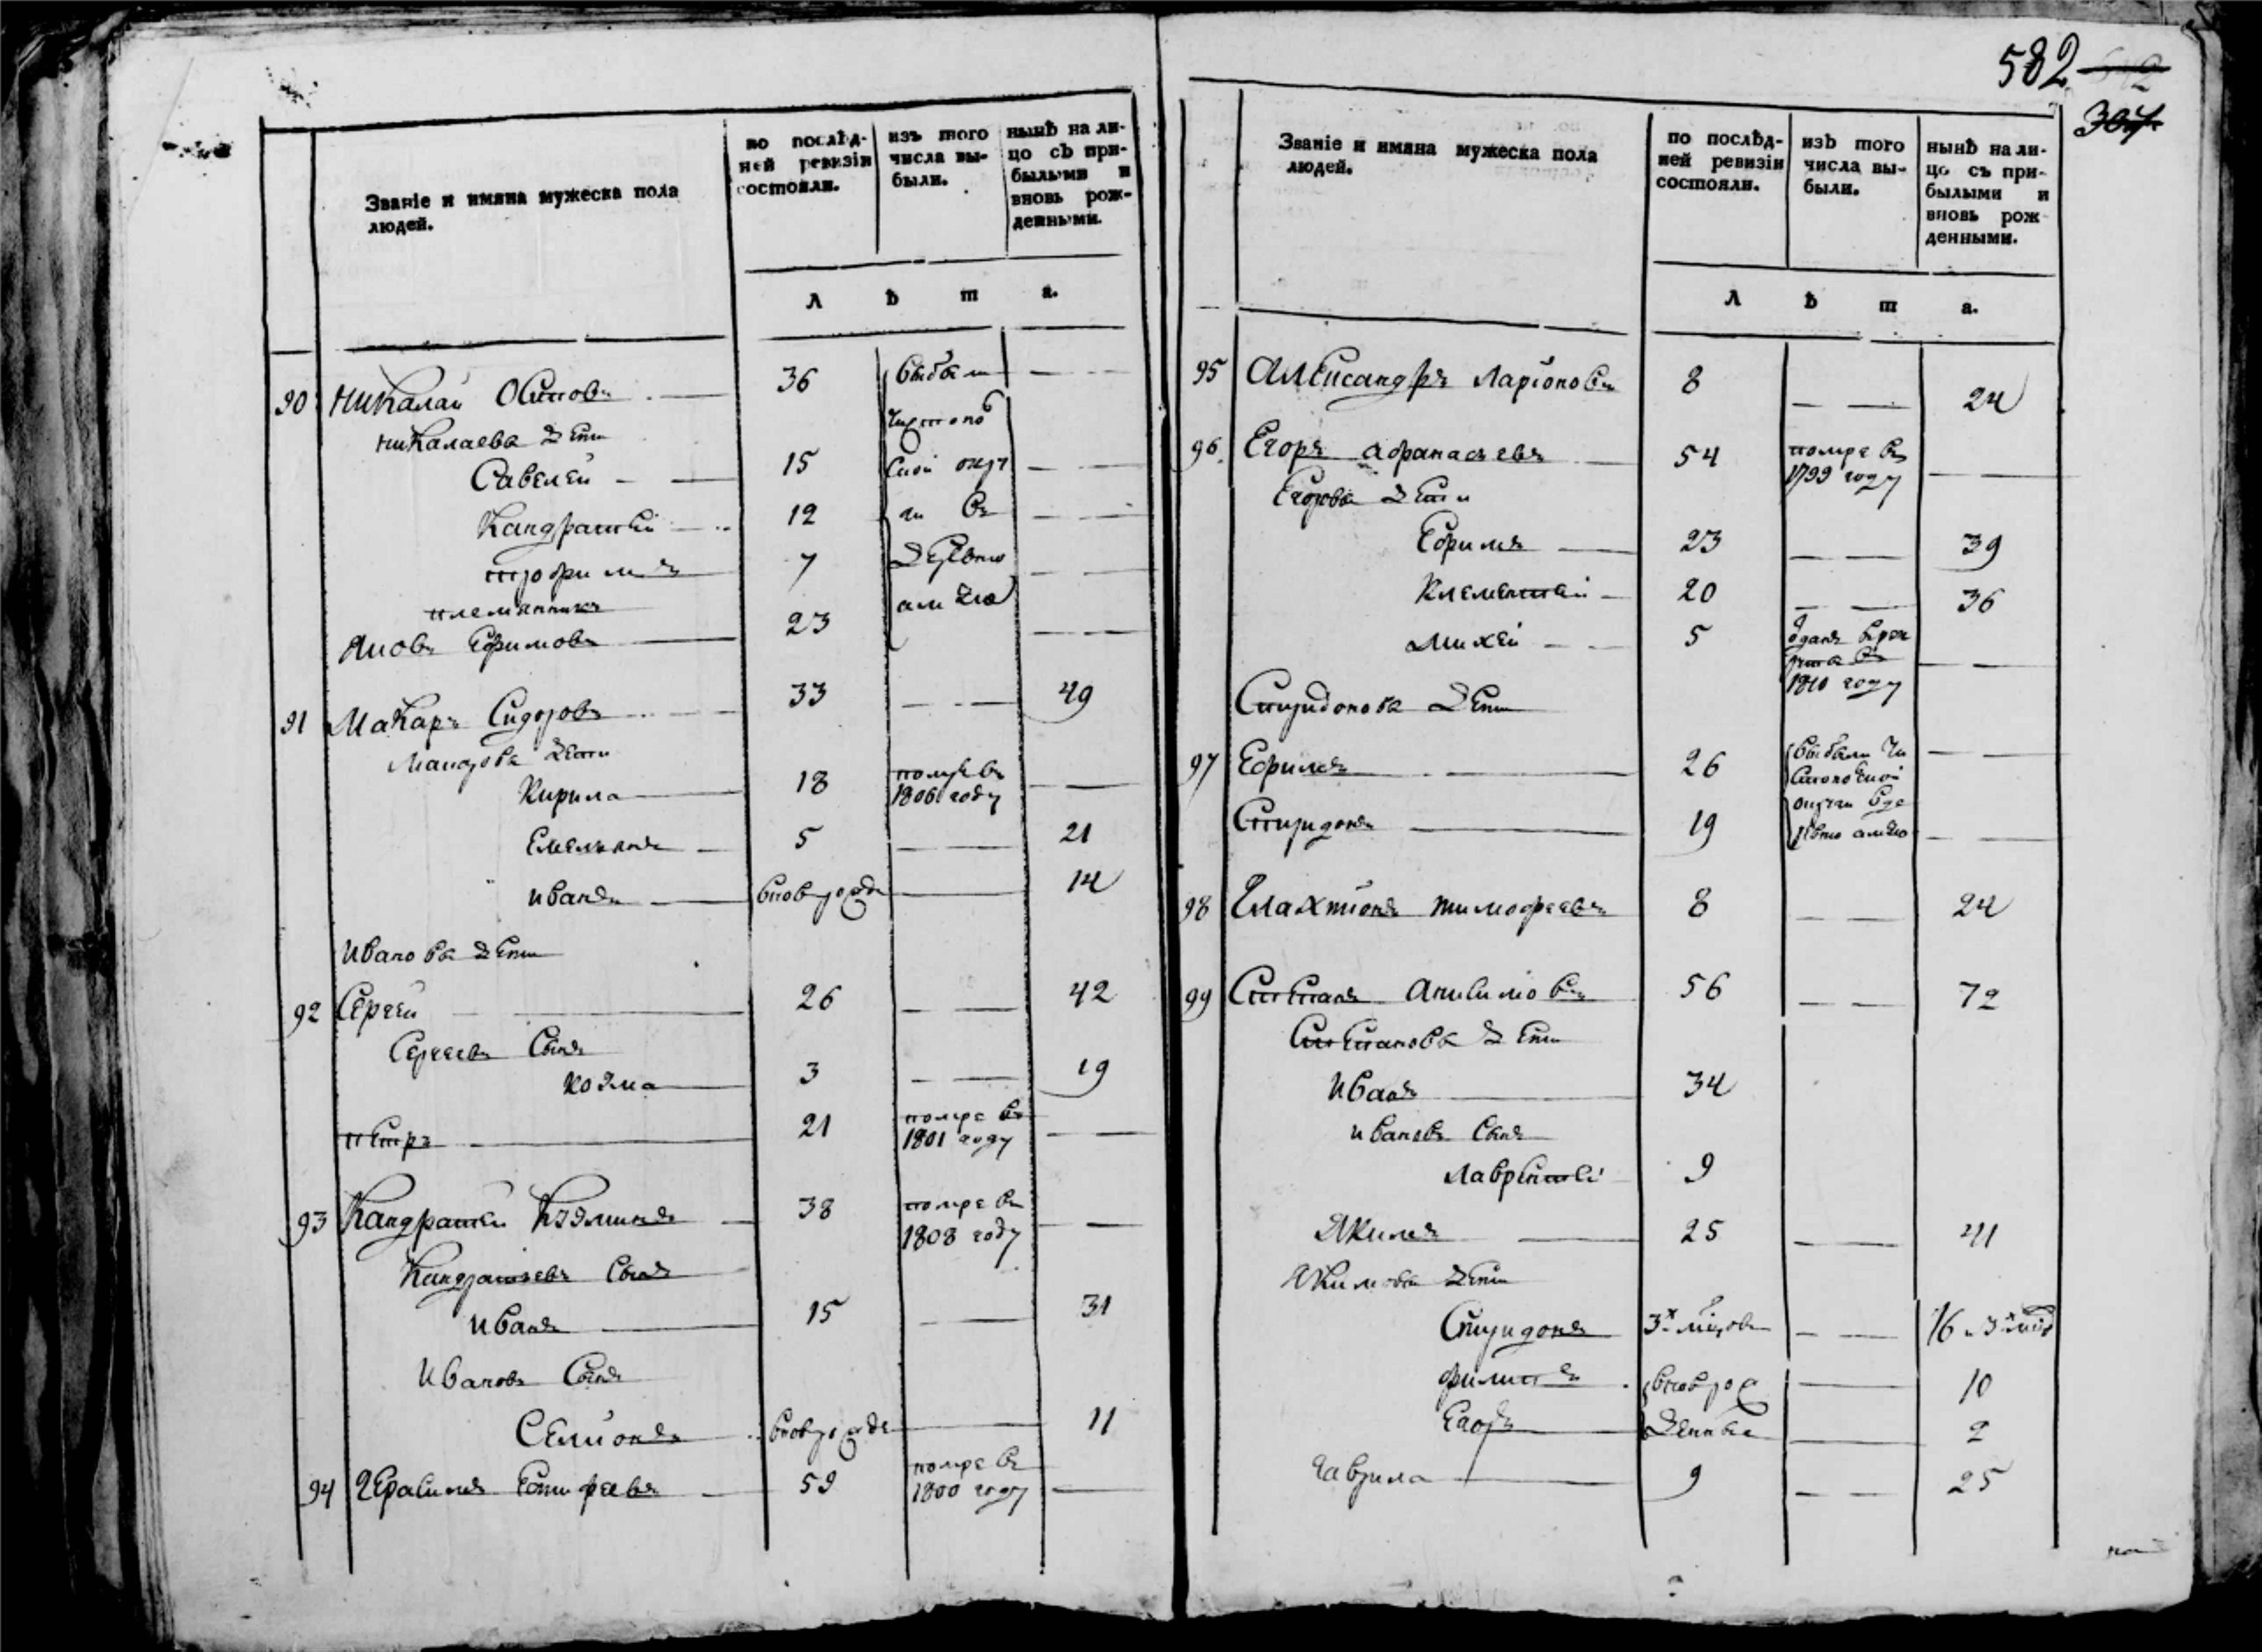 582
Званіе и имяна мужеска пола
людей.
по послѣд-
ней ревизіи
состояли.
изъ того
числа вы-
были.
нынѣ на ли-
цо съ при-
былыми и
вновь рож-
денными.
Л ѣ т а.
90 Николай Осиповъ 36 выбыли
Николаевы дети чистопо
Савелей 15 ской окру
Кандратей 12 ги въ
трофимъ 7 деревню
племянникъ
Яковъ Ефимовъ 23
91 Макаръ Сидоровъ 33 49
Макаровы дети
Кирила 18 помре въ
1806 году
Емельянъ 5 21
иванъ вновь рожде 14
Ивановы дети
92 Сергей 26 42
Сергеевъ сынъ
козма 3 19
петръ 21 помре въ
1801 году
93 Кандратей Козминъ 38 помре въ
1808 году
Кандратьевъ сынъ
иванъ 15 31
Ивановъ сынъ
Семионъ вновь рожде 11
94 Герасимъ 59 помре въ
1800 году
Званіе и имяна мужеска пола
людей.
по послѣд-
ней ревизіи
состояли.
изъ того
числа вы-
были.
нынѣ на ли-
цо съ при-
былыми и
вновь рож-
денными.
Л ѣ т а.
95 Александръ Ларіоновъ 8 24
96 Егоръ афанасьевъ 54 помре въ
1799 году
Егоровы дети
Ефимъ 23 39
Клементей 20 36
Михей 5 отданъ в рек
руты въ
1810 году
Спиридоновы дети
97 Ефимъ 26 выбыли чи
стопольской
Спиридонъ 19 округи в де
ревню
98 Галахтионъ тимофеевъ 8 24
99 Степанъ Анисимовъ 56 72
Степановы дети
Иванъ 34
ивановъ сынъ
Лаврентей 9
Якимъ 25 41
Якимовы дети
Спиридонъ 3х месецовъ 16 и 3х
филипъ вновь рож 10
Егоръ денные 2
гаврила 9 25